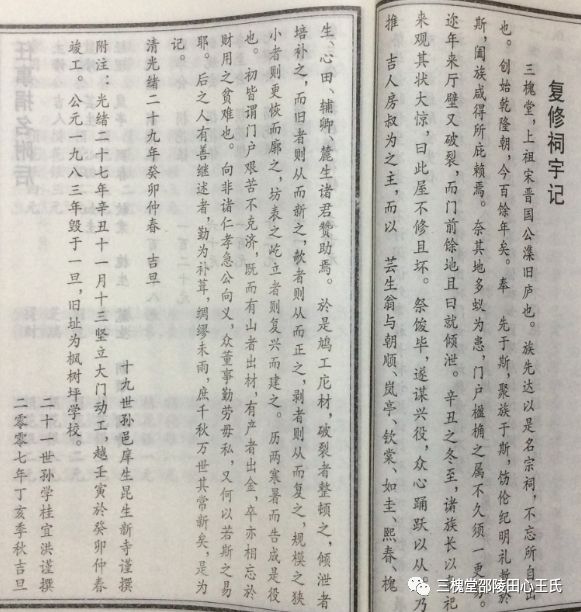 复修祠宇记
三槐堂,上祖宋晋国公澡旧庐也。 族先达以是名宗祠,不忘所自
也。创始乾隆朝,今百馀年矣。奉 先于斯,聚族于斯,饬伦纪明礼教於
斯,阖族咸得所庇赖焉。奈其地多蚁为患,门户楹桷之属不久须一更
迩年来厅壁又破裂,而门前馀地且日就倾泄。辛丑之冬至,诸族长以祀
来观其状大惊,曰此屋不修且坏。祭馂毕,遂谋兴役,众心踊跃以从。乃
推 吉人房叔为之主,而以 芸生翁与朝顺、岚亭、钦棠、如圭、熙春、槐
生、心田、辅卿、麓生诸君赞助焉。於是鸠工庀材,破裂者整顿之,倾泄者
培补之,而旧者则从而新之,欹者则从而正之,剥者则从而复之,规模之狭
小者则更恢而廓之,坊表之屹立者则复兴而建之。历两寒暑而告成是役
也。初皆谓门户艰苦不克济,既而有山者出材,有产者出金,卒亦相忘於
财用之贫难也。向非诸仁孝急公向义,众董事勤劳毋私,又何以若斯之易
耶。后之人有善继述者,勤为补葺,绸缪未雨,庶千秋万世其常新矣,是为
记。
清光緒二十九年癸卯仲春 吉旦
十九世孙邑庠生昆生新寺谨撰
附注:光緒二十七年辛丑十一月十三坚立大门动工,越壬寅於癸卯仲春
竣工。公元一九八三年毁于一旦,旧址为枫树坪学校。
二十一世孙学桂宜洪谨撰
二零零七年丁亥季秋吉旦
三槐堂邵陵田心王氏